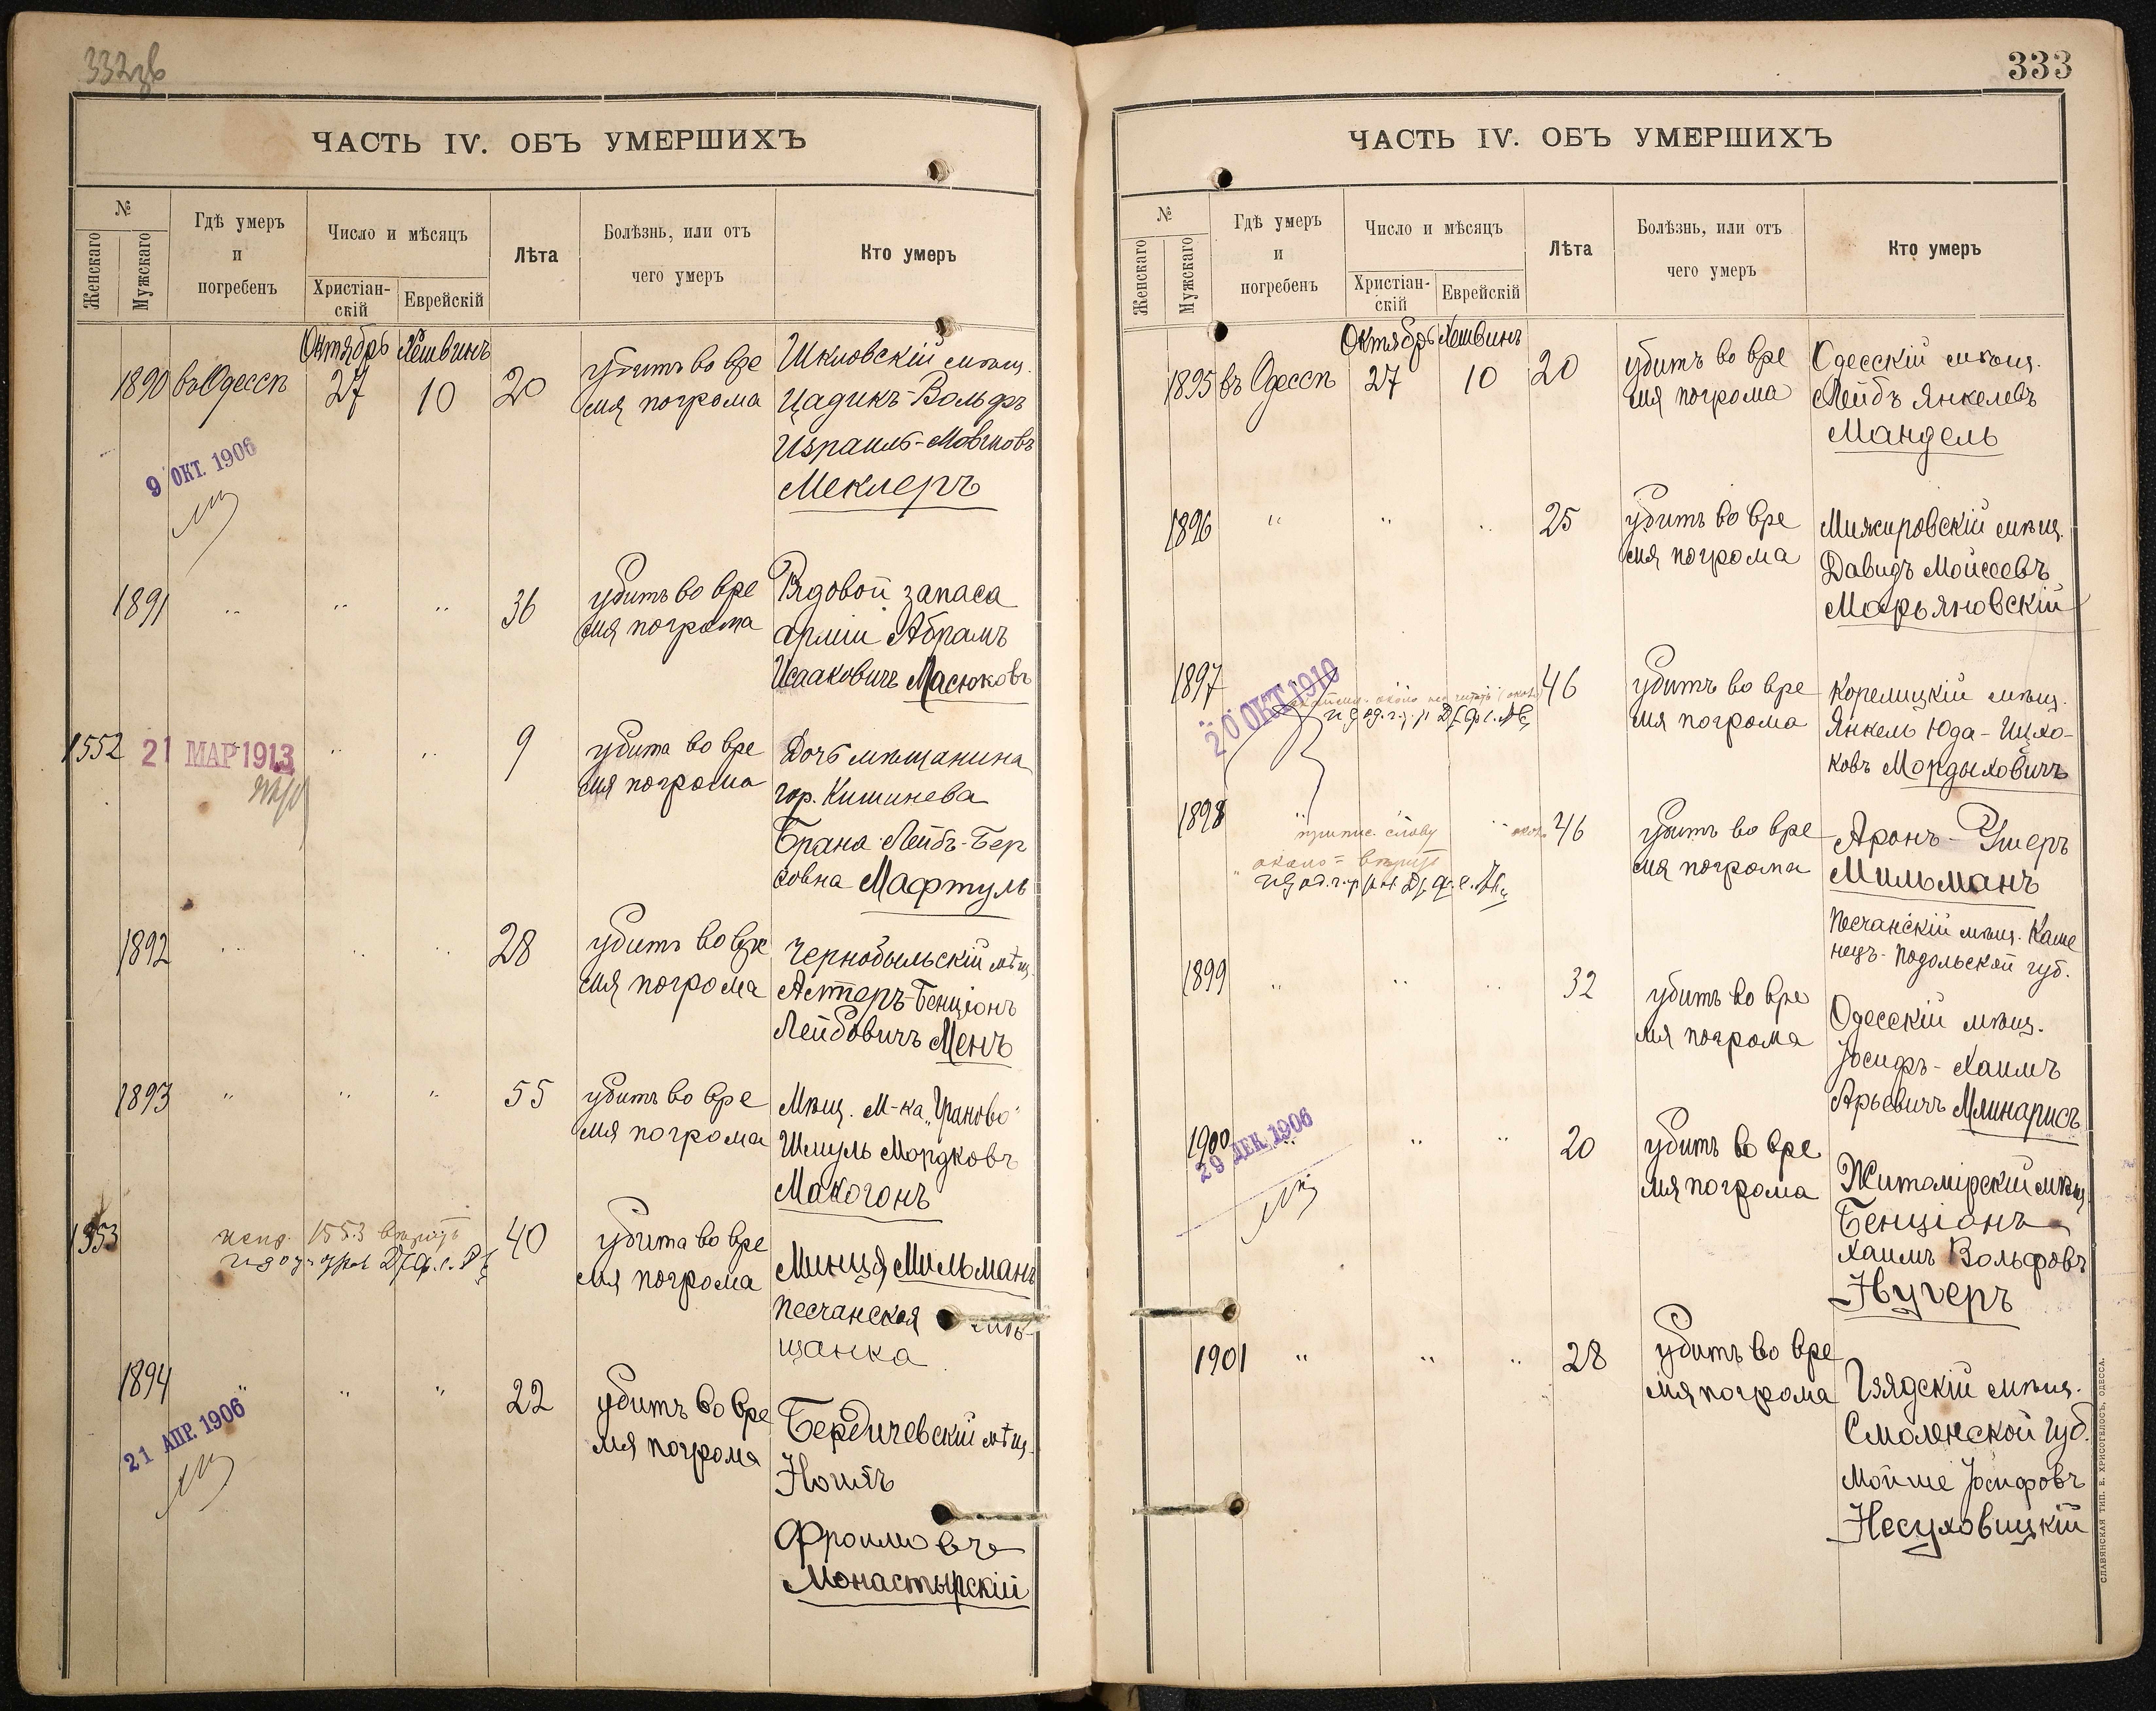 ЧАСТЬ IV. ОБЪ УМЕРШИХЪ
№
Женскаго
Мужскаго
Гдѣ умеръ
и
погребенъ
Число и мѣсяцъ
Христіан-
скій
Еврейскій
Лѣта
Болѣзнь, или отъ
чего умеръ
Кто умеръ
Октябрь Хешвинъ
1890 въ Одессѣ 27 10 20
убитъ во вре
мя погрома
Шкловскій мѣщ.
Цадикъ-Вольфъ
Израиль-Мовшовъ
Меклеръ
9 ОКТ. 1906
1891 " " " 36
убитъ во вре
мя погрома
Рядовой запаса
арміи Абрамъ
Исааковичъ Масюковъ
1552 21 МАР 1913 " " 9
убита во вре
мя погрома
Дочь мѣщанина
гор. Кишинева
Брана Лейбъ-Бер
ковна Мафтуль
1892 " " " 28
убитъ во вре
мя погрома
Чернобыльскій мѣщ.
Алтеръ-Бенціонъ
Лейбовичъ Менъ
1893 " " " 55
убитъ во вре
мя погрома
Мѣщ. М-ка „Ураново"
Шмуль Мордковъ
Макогонъ
1553 1553 вѣрить 40
убита во вре
мя погрома
Минця Мильманъ
песчанская мѣ-
щанка
1894 " " " 22
убитъ во вре
мя погрома
Бердичевскій мѣщ.
Фроимовъ
Монастырскій
21 АПР. 1906
333
ЧАСТЬ IV. ОБЪ УМЕРШИХЪ
№
Женскаго
Мужскаго
Гдѣ умеръ
и
погребенъ
Число и мѣсяцъ
Христіан-
скій
Еврейскій
Лѣта
Болѣзнь, или отъ
чего умеръ
Кто умеръ
Октябрь Хешвинъ
1895 въ Одессѣ 27 10 20
убитъ во вре
мя погрома
Одесскій мѣщ.
Лейбъ Янкелевъ
Мандель
1896 " " " 25
убитъ во вре
мя погрома
Мижировскій мѣщ.
Давидъ Мойсеевъ
Марьяновскій
1897 46
20 ОКТ 1910
убитъ во вре
мя погрома
Корелицкій мѣщ.
Янкель Юда-Ицхо-
ковъ Мордыховичъ
1898 46
припис. слову
около вѣрить
убитъ во вре
мя погрома
Аронъ-Ушеръ
Мильманъ
Песчанскій мѣщ. Каме
нецъ-Подольской губ.
1899 " " " 32
убитъ во вре
мя погрома
Одесскій мѣщ.
Іосифъ-Хаимъ
Арьевичъ Млинарисъ
1900 " " " 20
29 ДЕК. 1906
убитъ во вре
мя погрома
Житомірскій мѣщ.
Бенціонъ
Хаимъ Вольфовъ
Нугеръ
1901 " " " 28
убитъ во вре
мя погрома
Смоленской губ.
Мойше Іосифовъ
Несуховицкій
СЛАВЯНСКАЯ ТИП. Е. ХРИСОГЕЛОСЪ, ОДЕССА.